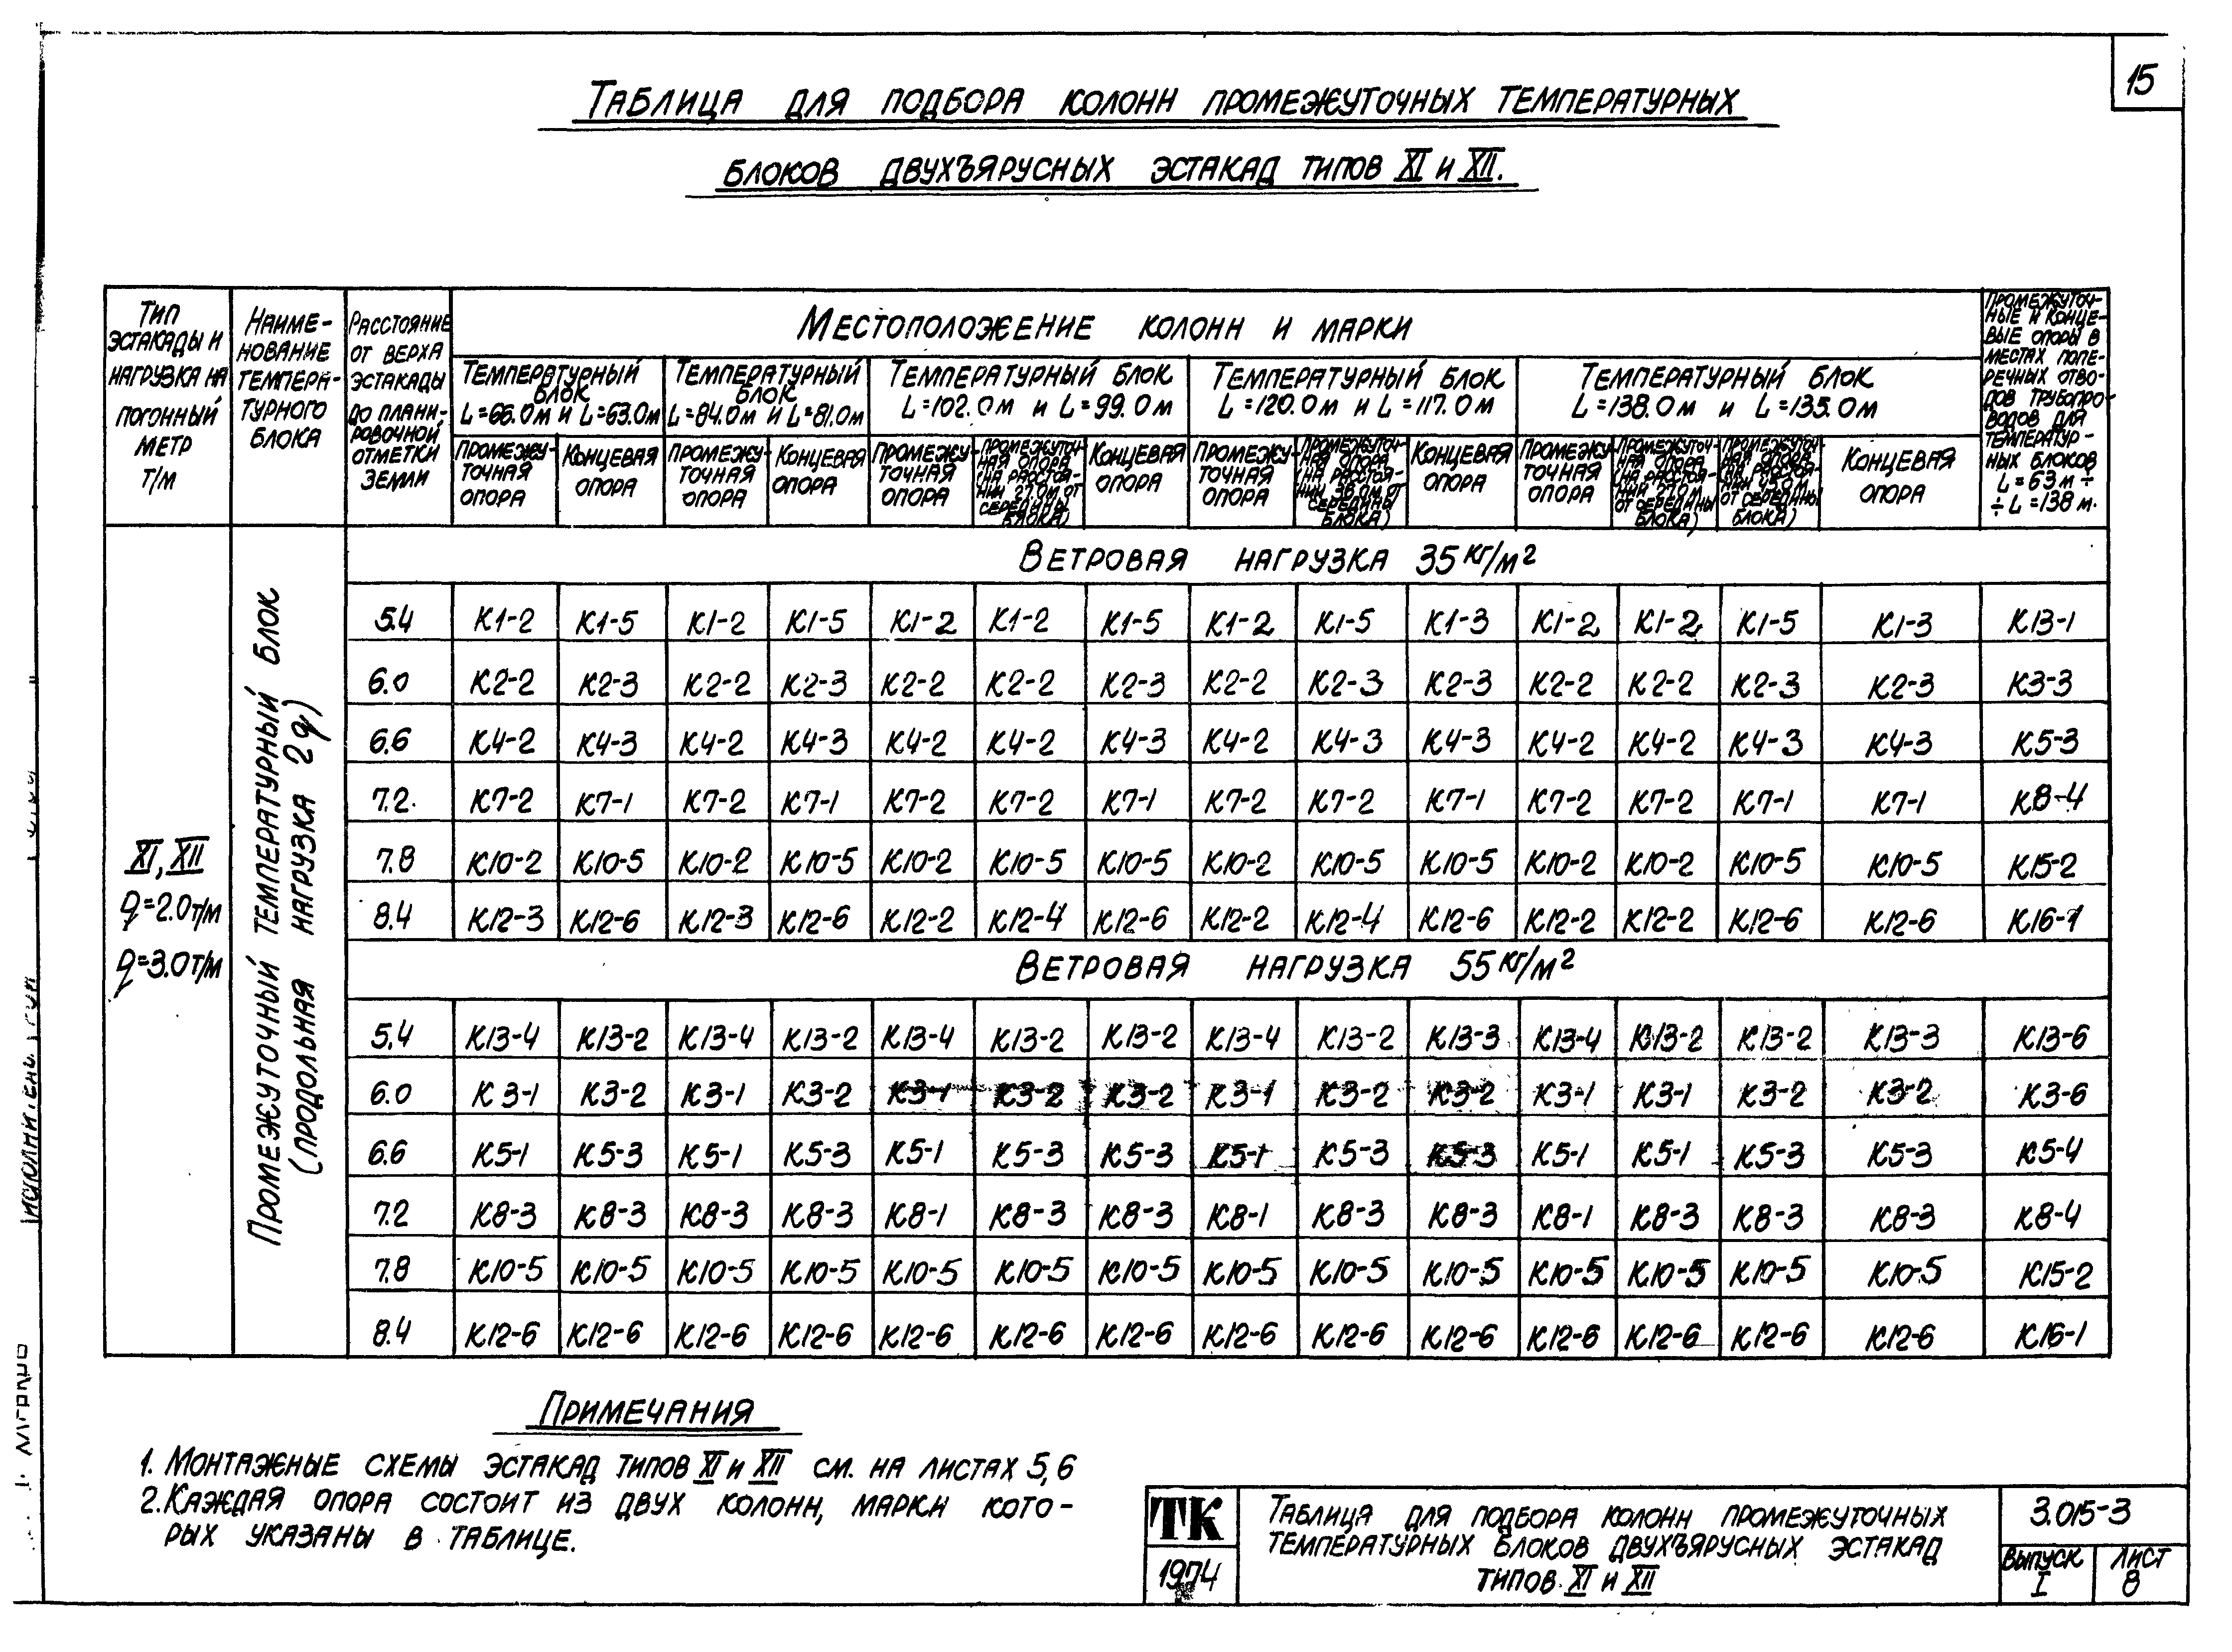 15
Таблица для подбора колонн промежуточных температурных
блоков двухъярусных эстакад типов XI и XII.
Тип эстакады и нагрузка на погонный метр т/м
Наиме-нование темпера-турного блока
Расстояние от верха эстакады до плани-ровочной отметки земли
Местоположение колонн и марки
Промежуточ-ные и конце-вые опоры в местах попе-речных отво-дов трубопро-водов для температур-ных блоков L=63м ÷ ÷ L=138 м.
Температурный блок L=66.0м и L=63.0м
Температурный блок L=84.0м и L=81.0м
Температурный блок L=102.0м и L=99.0м
Температурный блок L=120.0м и L=117.0м
Температурный блок L=138.0м и L=135.0м
Промежу-точная опора
Концевая опора
Промежу-точная опора
Концевая опора
Промежу-точная опора
Промежуточ-ная опора (на расстоя-нии 27.0м от середины блока)
Концевая опора
Промежу-точная опора
Промежуточ-ная опора (на расстоя-нии 36.0м от середины блока)
Концевая опора
Промежу-точная опора
Промежуточ-ная опора (на расстоя-нии от середины блока)
Промежуточ-ная опора (на расстоя-нии 45.0м от середины блока)
Концевая опора
XI, XII
q=2.0т/м
q=3.0т/м
Промежуточный температурный блок
(продольная нагрузка 2q)
Ветровая нагрузка 35 кг/м²
5.4 К1-2 К1-5 К1-2 К1-5 К1-2 К1-2 К1-5 К1-2 К1-5 К1-3 К1-2 К1-2 К1-5 К1-3 К13-1
6.0 К2-2 К2-3 К2-2 К2-3 К2-2 К2-2 К2-3 К2-2 К2-3 К2-3 К2-2 К2-2 К2-3 К2-3 К3-3
6.6 К4-2 К4-3 К4-2 К4-3 К4-2 К4-2 К4-3 К4-2 К4-3 К4-3 К4-2 К4-2 К4-3 К4-3 К5-3
7.2. К7-2 К7-1 К7-2 К7-1 К7-2 К7-2 К7-1 К7-2 К7-2 К7-1 К7-2 К7-2 К7-1 К7-1 К8-4
7.8 К10-2 К10-5 К10-2 К10-5 К10-2 К10-5 К10-5 К10-2 К10-5 К10-5 К10-2 К10-2 К10-5 К10-5 К15-2
8.4 К12-3 К12-6 К12-3 К12-6 К12-2 К12-4 К12-6 К12-2 К12-4 К12-6 К12-2 К12-2 К12-6 К12-6 К16-1
Ветровая нагрузка 55 кг/м²
5.4 К13-4 К13-2 К13-4 К13-2 К13-4 К13-2 К13-2 К13-4 К13-2 К13-3 К13-4 К13-2 К13-2 К13-3 К13-6
6.0 К3-1 К3-2 К3-1 К3-2 К3-1 К3-2 К3-2 К3-1 К3-2 К3-2 К3-1 К3-1 К3-2 К3-2 К3-6
6.6 К5-1 К5-3 К5-1 К5-3 К5-1 К5-3 К5-3 К5-1 К5-3 К5-3 К5-1 К5-1 К5-3 К5-3 К5-4
7.2 К8-3 К8-3 К8-3 К8-3 К8-1 К8-3 К8-3 К8-1 К8-3 К8-3 К8-1 К8-3 К8-3 К8-3 К8-4
7.8 К10-5 К10-5 К10-5 К10-5 К10-5 К10-5 К10-5 К10-5 К10-5 К10-5 К10-5 К10-5 К10-5 К10-5 К15-2
8.4 К12-6 К12-6 К12-6 К12-6 К12-6 К12-6 К12-6 К12-6 К12-6 К12-6 К12-6 К12-6 К12-6 К12-6 К16-1
Примечания
1. Монтажные схемы эстакад типов XI и XII см. на листах 5,6
2. Каждая опора состоит из двух колонн, марки кото-
рых указаны в таблице.
ТК
1974
Таблица для подбора колонн промежуточных
температурных блоков двухъярусных эстакад
типов XI и XII
3.015-3
Выпуск I
Лист 8